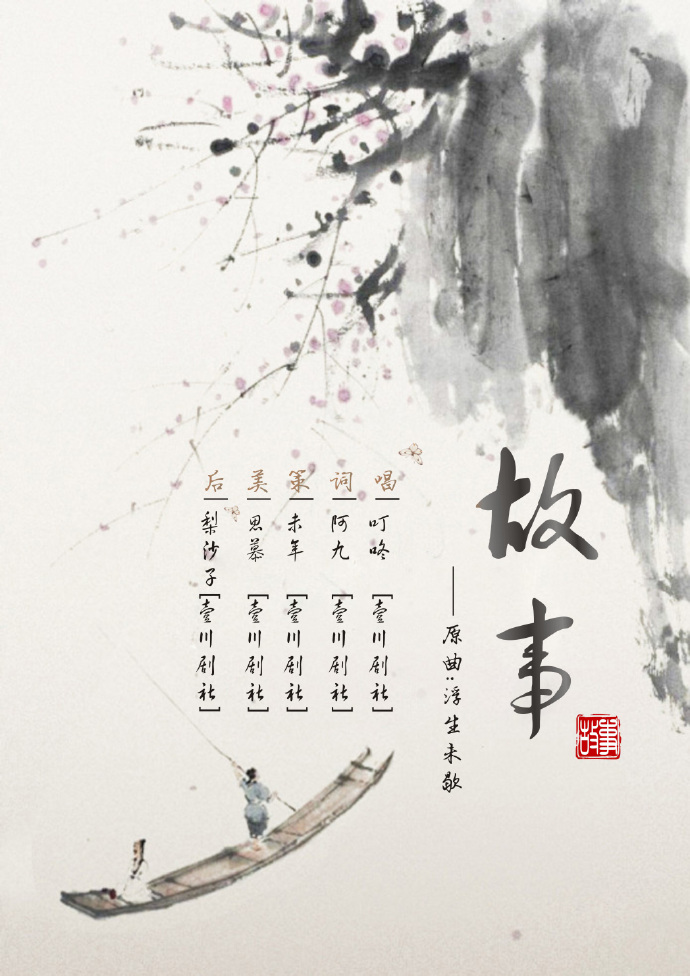 故事
故事
——原曲:浮生未歇
唱 叮咚[壹川剧社]
词 阿九[壹川剧社]
策 未年[壹川剧社]
美 思慕[壹川剧社]
后 梨沙子[壹川剧社]